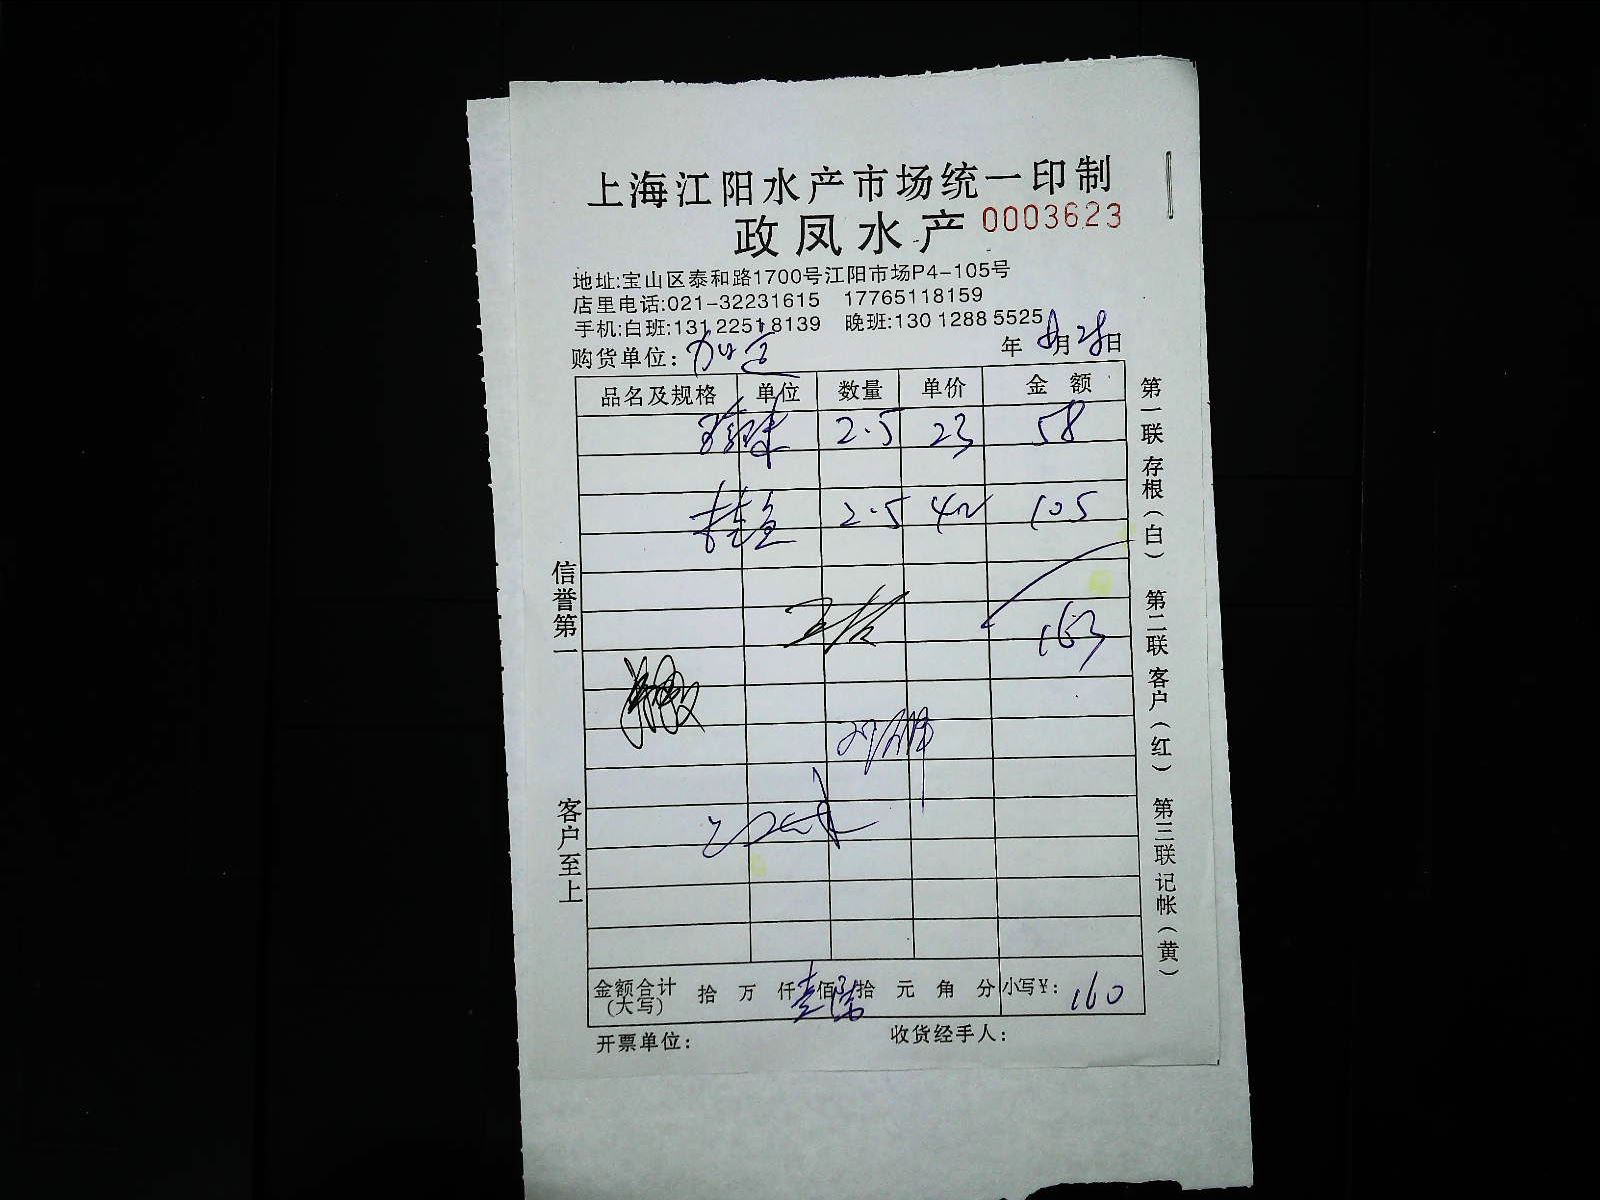 上海江阳水产市场统一印制
政凤水产 0003623
地址:宝山区泰和路1700号江阳市场P4-105号
店里电话:021-32231615 17765118159
手机:白班:131 2251 8139 晚班:130 1288 5525
购货单位: 年 8月28日
品名及规格 单位 数量 单价 金额
2.5 23 58
桂鱼 2.5 42 105
163
金额合计(大写) 拾 万 仟 壹佰 陆拾 元 角 分 小写¥: 160
开票单位: 收货经手人:
信誉第一
客户至上
第一联 存根(白) 第二联 客户(红) 第三联 记帐(黄)